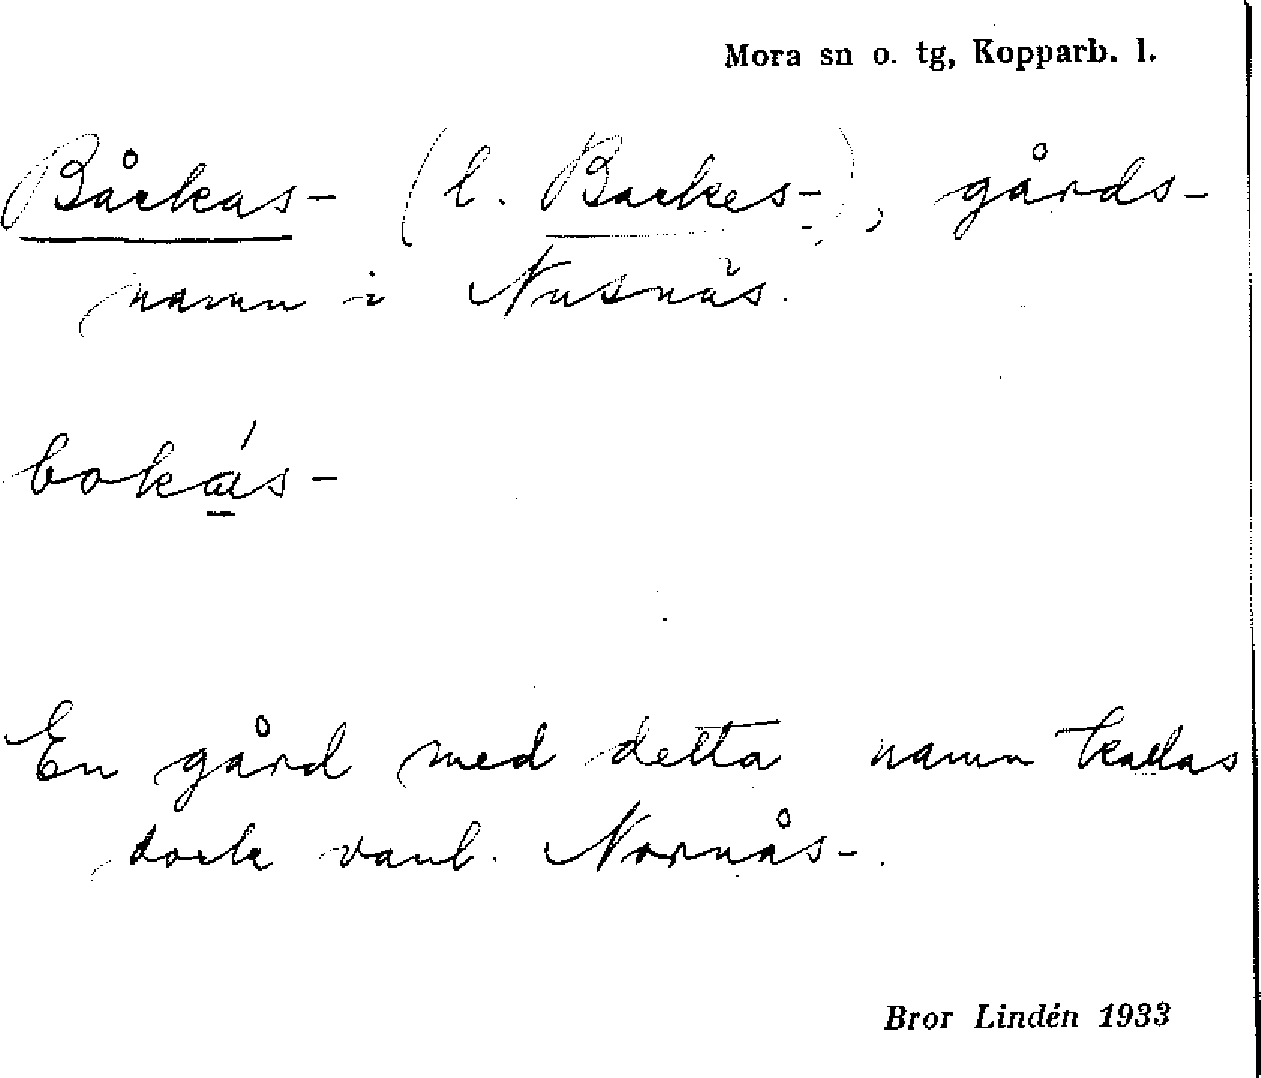 Mora sn o. tg, Kopparb. l.
Båckas- (l. Backes-), gårds-
namn i Nusnäs.
bokás-
En gård med detta namn kallas
dock vanl. Nornås-.
Bror Lindén 1933